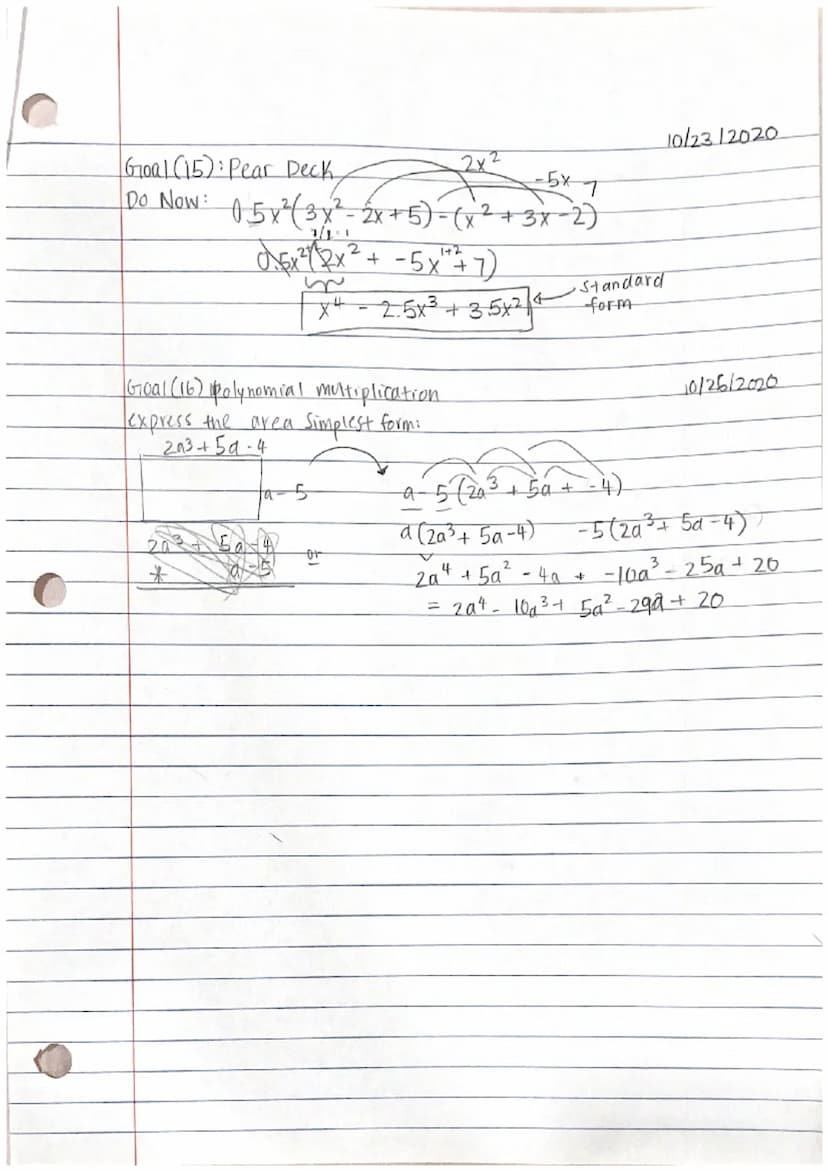 10/23/2020
Goal (15): Pear Deck 2x² -5x 7
Do Now: 0.5x²(3x² - 2x + 5) - (x² + 3x - 2)
0.5x²(2x² + -5x¹⁺² + 7)
x⁴ - 2.5x³ + 3.5x² ← standard form
Goal (16) polynomial multiplication 10/26/2020
express the area simplest form:
2a³ + 5a - 4
a - 5 a - 5 (2a³ + 5a + -4)
a (2a³ + 5a - 4) -5 (2a³ + 5a - 4)
2a³ + 5a - 4 or
* a - 5 2a⁴ + 5a² - 4a + -10a³ - 25a + 20
= 2a⁴ - 10a³ + 5a² - 29a + 20